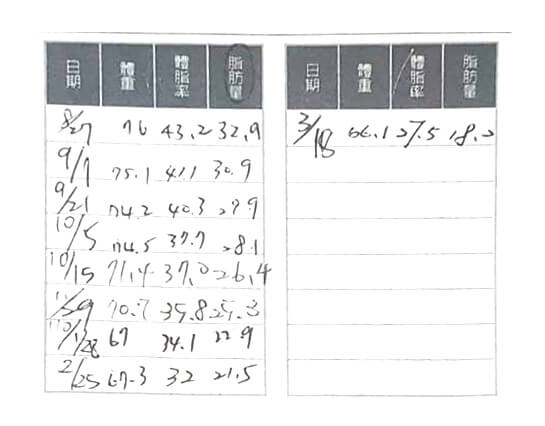 日期 體重 體脂率 脂肪量
8/27 76 43.2 32.9
9/7 75.1 41.1 30.9
9/21 74.2 40.3 29.9
10/5 74.5 37.7 28.1
10/15 71.4 37.0 26.4
70.7 35.8 25.3
67 34.1 22.9
2/25 67.3 32 21.5
日期 體重 體脂率 脂肪量
3/18 66.1 27.5 18.2